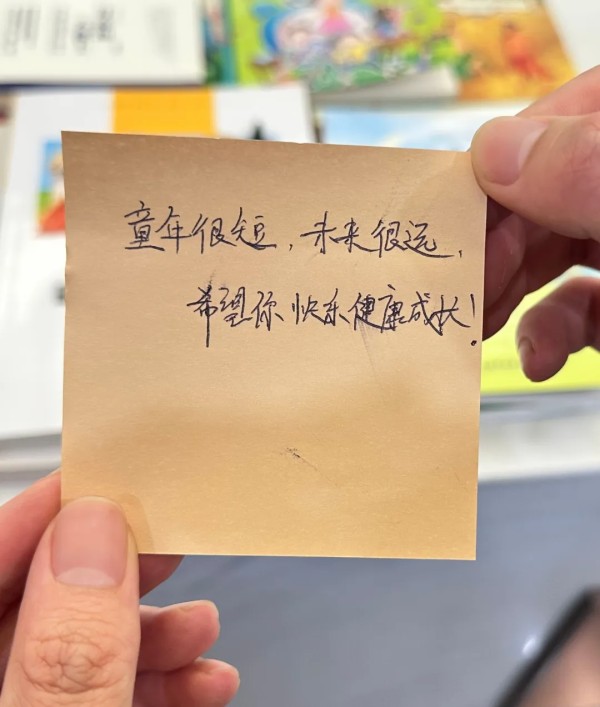 童年很短，未来很远，
希望你快乐健康成长！